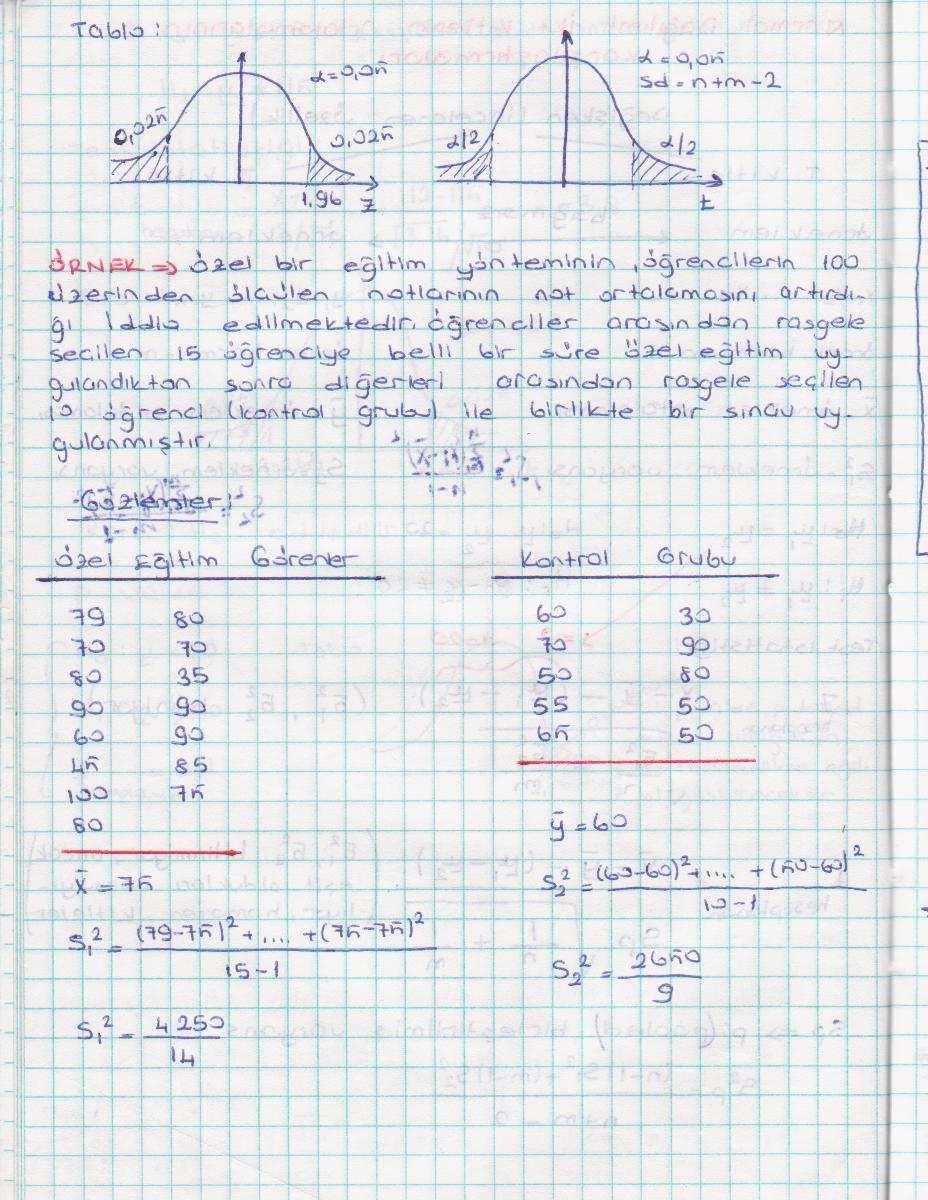 Tablo:
α = 0,05
0,025
0,025
1,96 z
α = 0,05
Sd = n+m-2
α/2
α/2
t
ÖRNEK => Özel bir eğitim yönteminin, öğrencilerin 100
üzerinden ölçülen notlarının not ortalamasını artırdı-
ğı iddia edilmektedir. Öğrenciler arasından rasgele
seçilen 15 öğrenciye belli bir süre özel eğitim uy-
gulandıktan sonra diğerleri arasından rasgele seçilen
10 öğrenci (kontrol grubu) ile birlikte bir sınav uy-
gulanmıştır.
Gözlemler:
Özel Eğitim Görenler
79 80
70 70
80 35
90 90
60 90
45 85
100 75
80
x̄ = 75
S₁² = (79-75)² + .... + (75-75)² / 15-1
S₁² = 4250 / 14
Kontrol Grubu
60 30
70 90
50 80
55 50
65 50
ȳ = 60
S₂² = (60-60)² + .... + (50-60)² / 10-1
S₂² = 2650 / 9